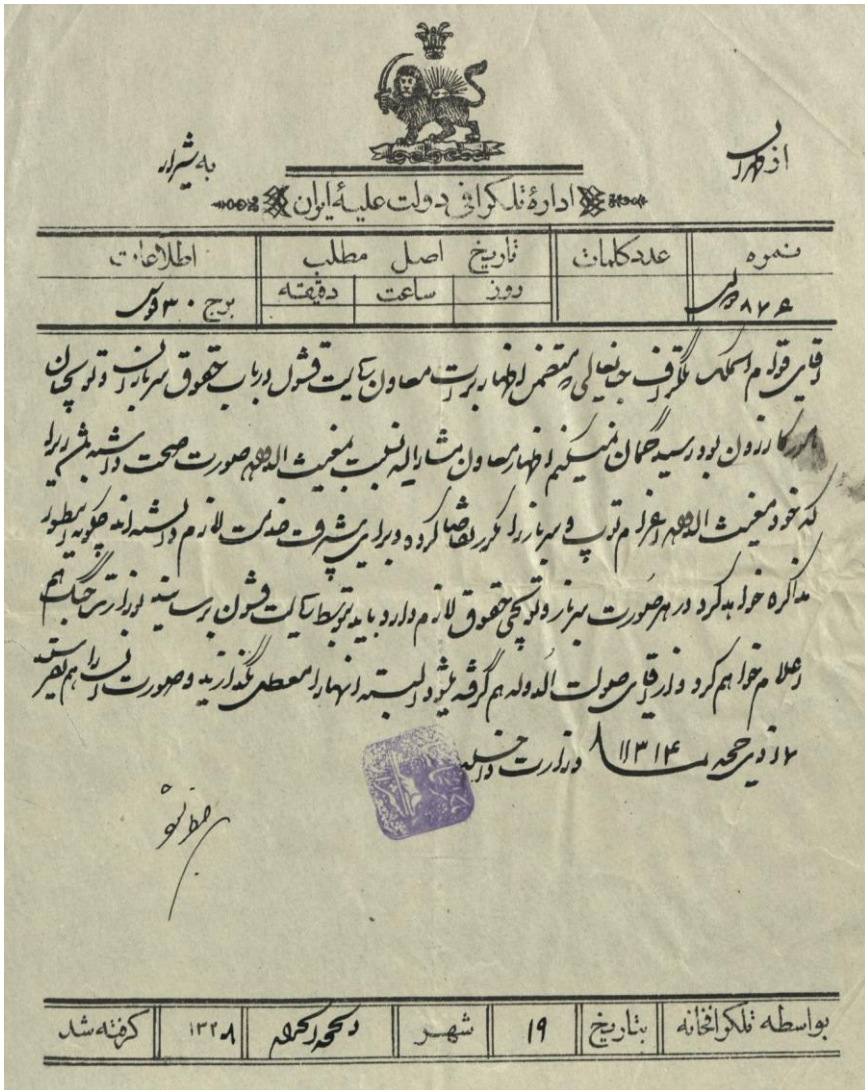 از طهران
به شیراز
اداره تلگرافی دولت علیه ایران
نمره عدد کلمات تاریخ اصل مطلب اطلاعات
روز ساعت دقیقه
۸۷۶ برج ۳۰ قوس
آقای قوام الملک تلگراف جنابعالی متضمن اظهارات معاون ریاست قشون در باب حقوق سربازان و توپچیان
کازرون بود رسید گمان نمیکنم اظهار معاون مشارالیه نسبت بمغیث الدوله صورت صحت داشته باشد زیرا
که خود مغیث الدوله اعزام توپ و سرباز را مکرر تقاضا کرده و برای پیشرفت خدمت لازم دانسته اند چگونه اینطور
مذاکره خواهد کرد در هر صورت سرباز و توپچی حقوق لازم دارد باید توسط ریاست قشون برسانید بوزارت جنگ هم
اعلام خواهم کرد و از آقای صولت الدوله هم گرفته میشود البته آنها را معطل نگذارید و صورت آن را هم بفرستید
ذی حجه وزارت داخله
بواسطه تلگرافخانه بتاریخ ۱۹ شهر ذیحجه الحرام ۱۳۲۸ گرفته شد